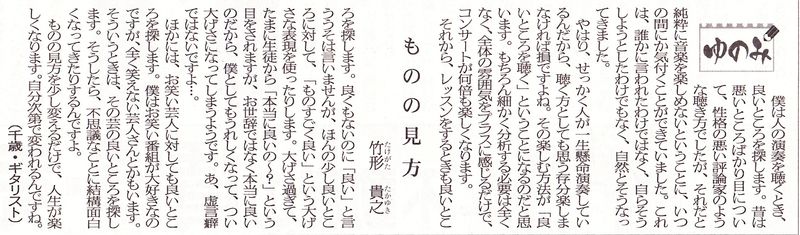 ゆのみ
ものの見方
竹形 貴之
たけがた たかゆき
僕は人の演奏を聴くとき、
良いところを探します。昔は
悪いところばかり目につい
て、性格の悪い評論家のよう
な聴き方でしたが、それだと
純粋に音楽を楽しめないということに、いつ
の間にか気付くことができていました。これ
は、誰かに言われたわけではなく、自らそう
しようとしたわけでもなく、自然とそうなっ
てきました。
やはり、せっかく人が一生懸命演奏してい
るんだから、聴く方としても思う存分楽しま
なければ損ですよね。その楽しむ方法が「良
いところを聴く」ということになるのだと思
います。もちろん細かく分析する必要は全く
なく、全体の雰囲気をプラスに感じるだけで、
コンサートが何倍も楽しくなります。
それから、レッスンをするときも良いとこ
ろを探します。良くもないのに「良い」と言
ううそは言いませんが、ほんの少し良いとこ
ろに対して、「ものすごく良い」という大げ
さな表現を使ったりします。大げさ過ぎて、
たまに生徒から「本当に良いの〜？」という
目をされますが、お世辞ではなく本当に良い
のだから、僕としてもうれしくなって、つい
大げさになってしまうようです。あ、虚言癖
ではないですよ…。
ほかには、お笑い芸人に対しても良いとこ
ろを探します。僕はお笑い番組が大好きなの
ですが、全く笑えない芸人さんとかもいます。
そういうときは、その芸の良いところを探し
ます。そうしたら、不思議なことに結構面白
くなってきたりするんですよ。
ものの見方を少し変えるだけで、人生が楽
しくなります。自分次第で変われるんですね。
（千歳・ギタリスト）